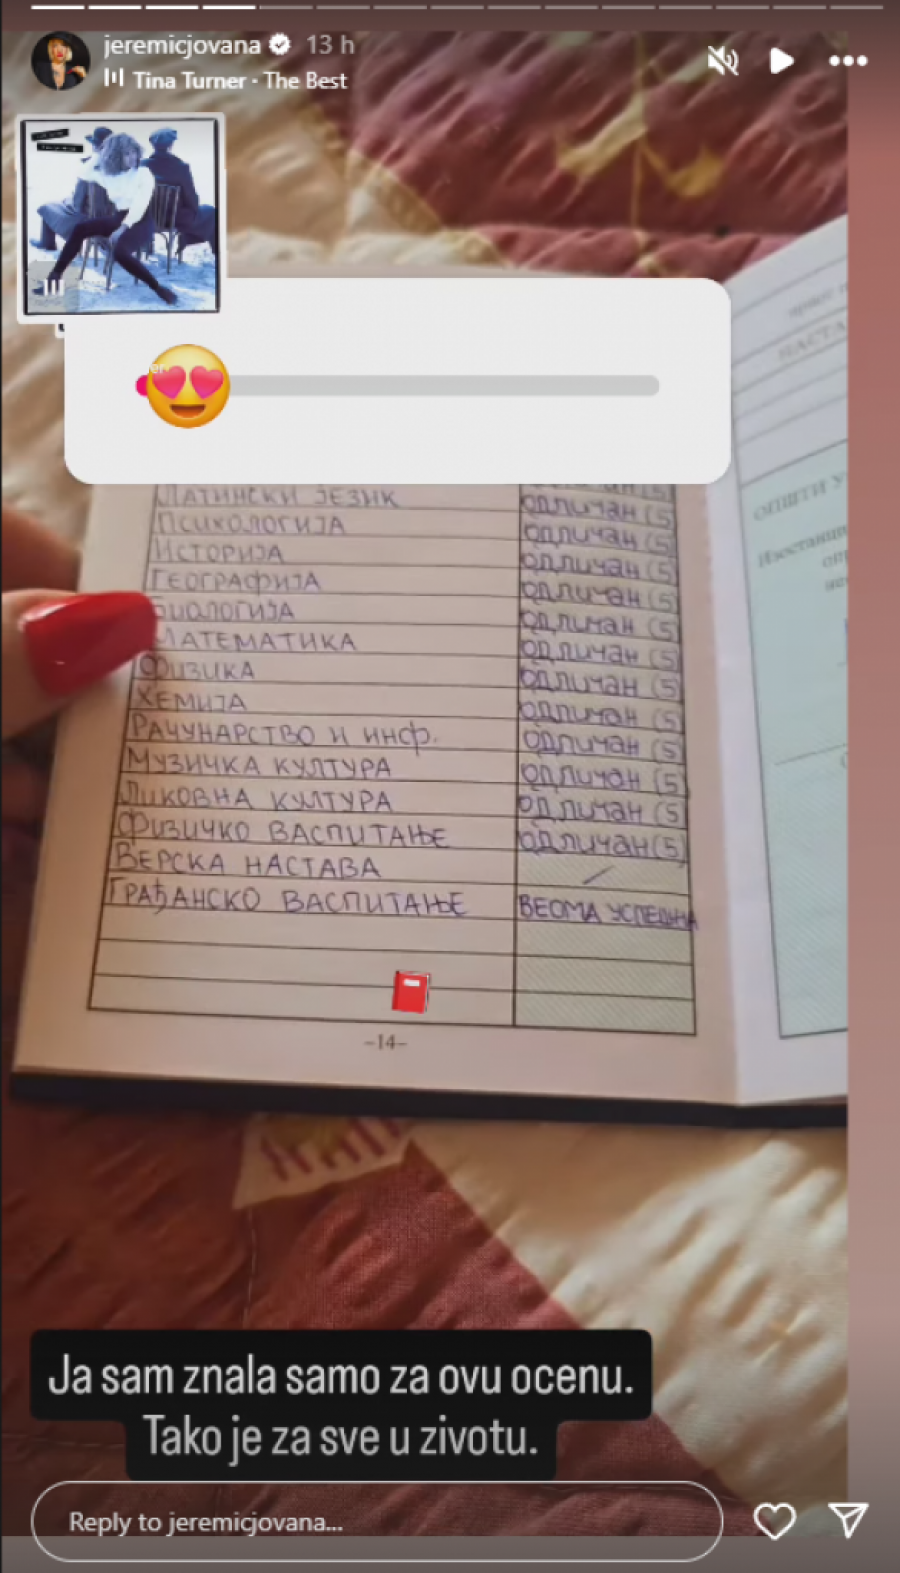 jeremicjovana 13 h
Tina Turner · The Best
ЛАТИНСКИ ЈЕЗИК ОДЛИЧАН (5)
ПСИХОЛОГИЈА ОДЛИЧАН (5)
ИСТОРИЈА ОДЛИЧАН (5)
ГЕОГРАФИЈА ОДЛИЧАН (5)
БИОЛОГИЈА ОДЛИЧАН (5)
МАТЕМАТИКА ОДЛИЧАН (5)
ФИЗИКА ОДЛИЧАН (5)
ХЕМИЈА ОДЛИЧАН (5)
РАЧУНАРСТВО И ИНФ. ОДЛИЧАН (5)
МУЗИЧКА КУЛТУРА ОДЛИЧАН (5)
ЛИКОВНА КУЛТУРА ОДЛИЧАН (5)
ФИЗИЧКО ВАСПИТАЊЕ ОДЛИЧАН (5)
ВЕРСКА НАСТАВА /
ГРАЂАНСКО ВАСПИТАЊЕ ВЕОМА УСПЕШНА
-14-
ОПШТИ У
Изостанци
Ja sam znala samo za ovu ocenu.
Tako je za sve u zivotu.
Reply to jeremicjovana...